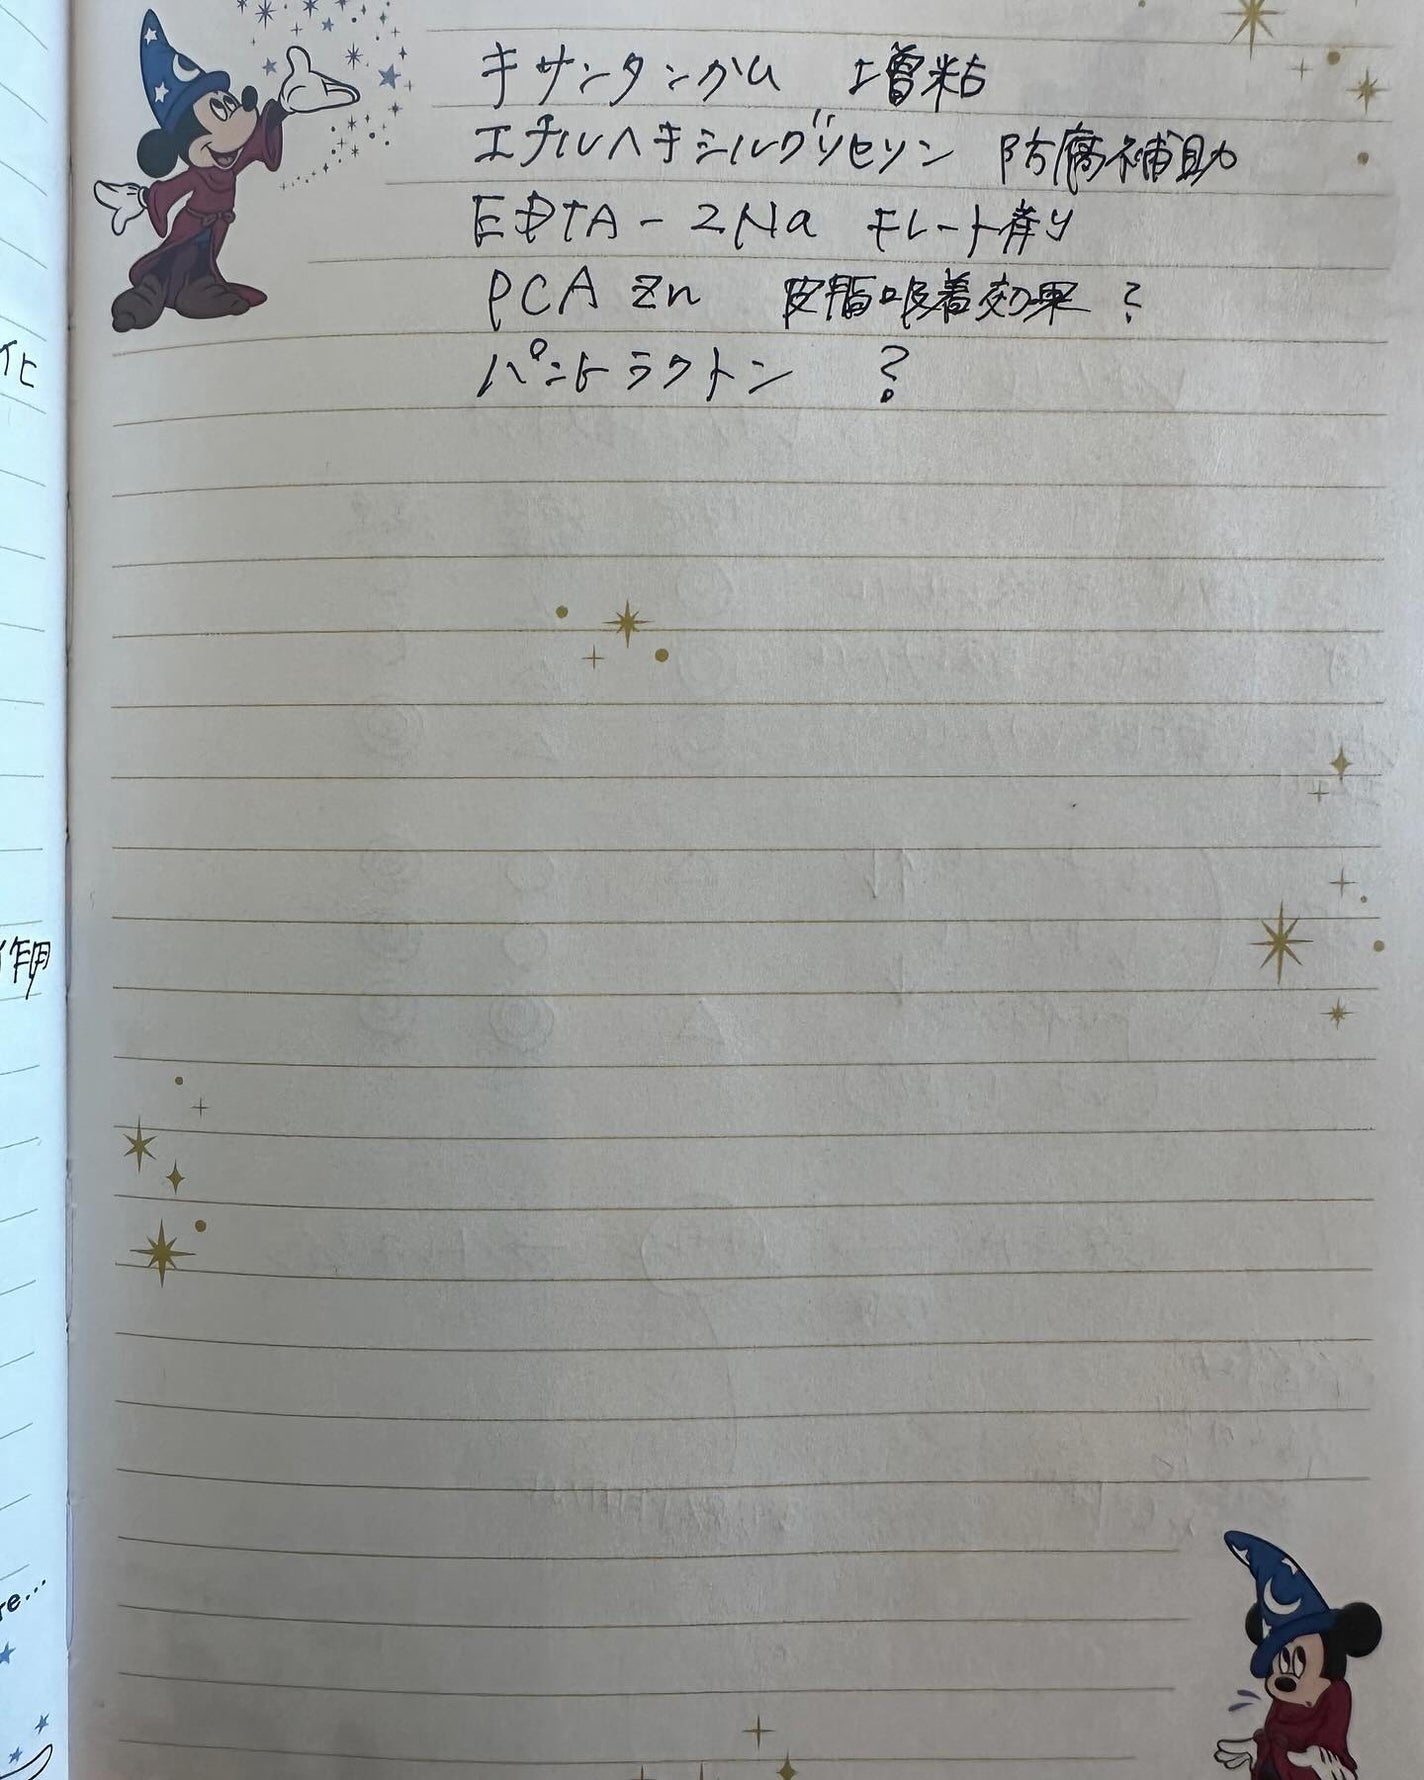 キサンタンガム 増粘
エチルヘキシルグリセリン 防腐補助
EDTA-2Na キレート剤
PCA Zn 皮脂吸着効果?
パントラクトン ?
化
作用
re...